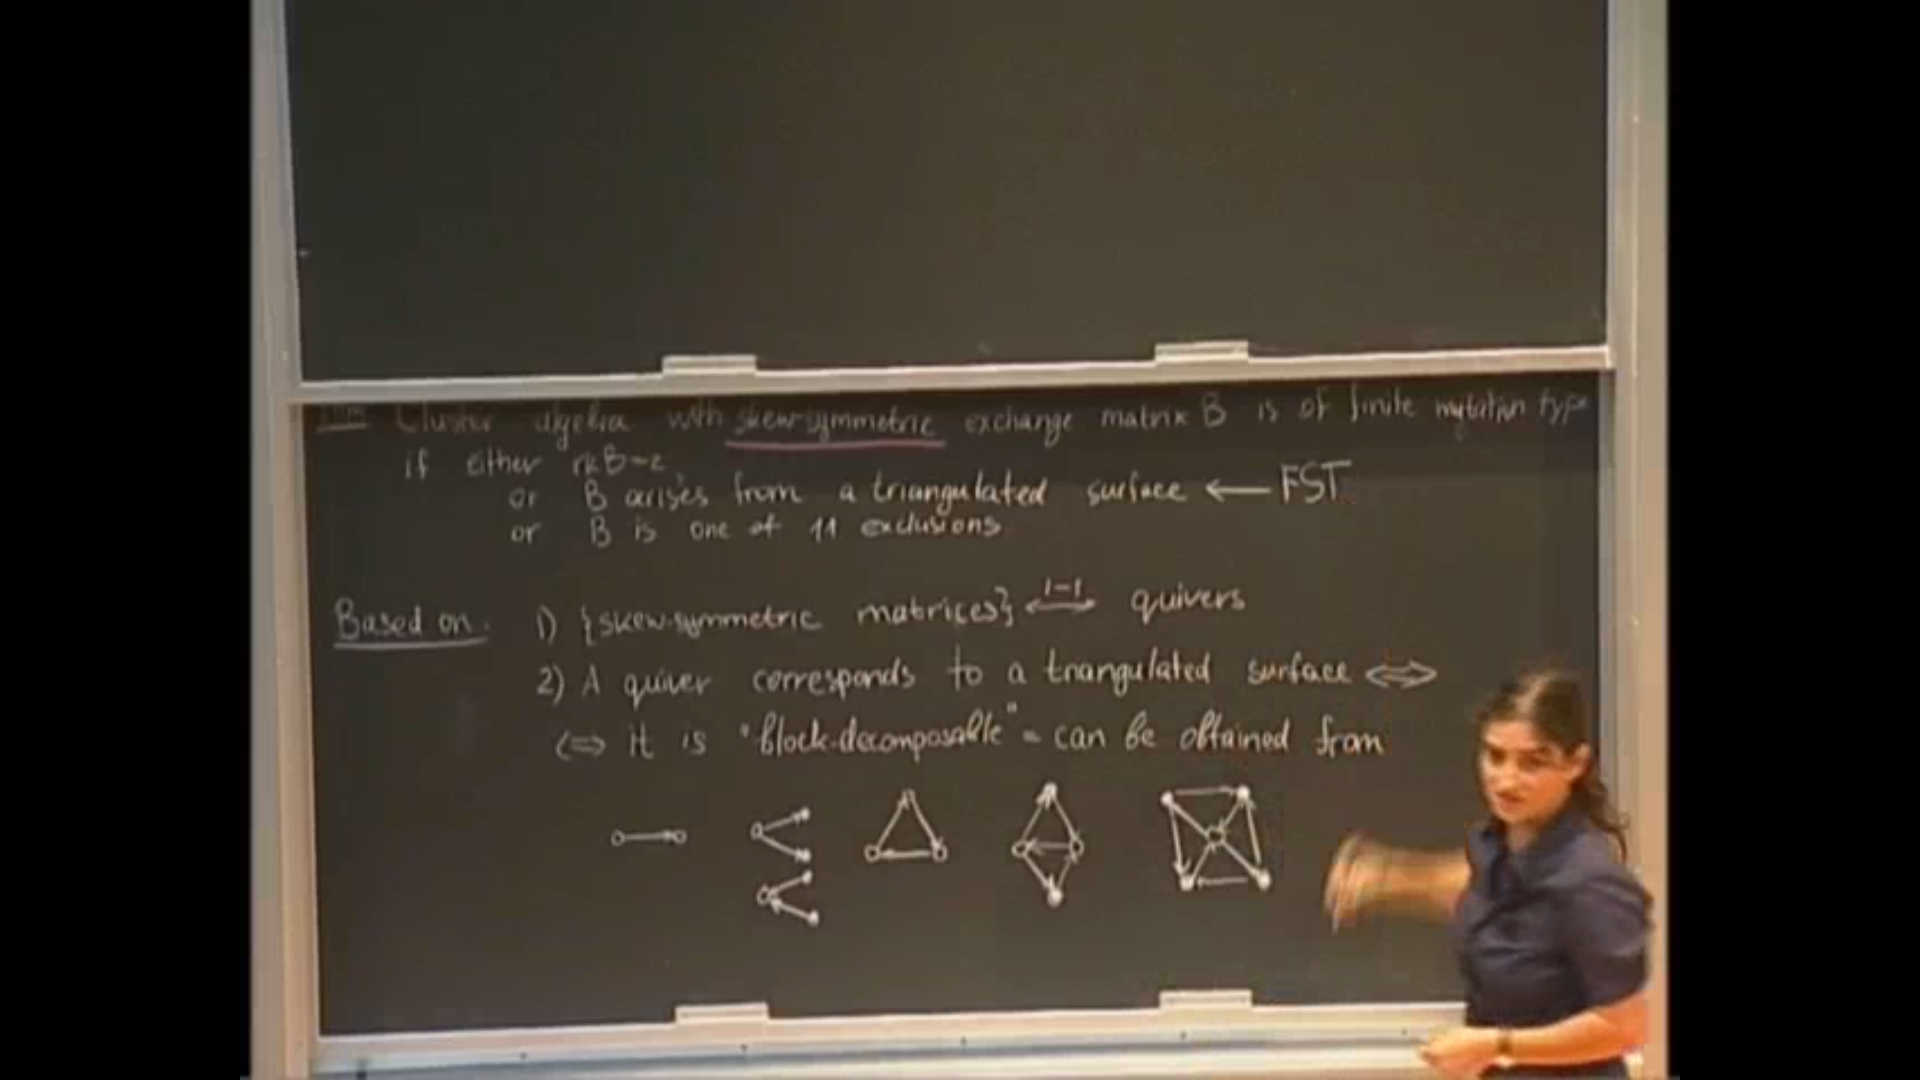 Thm Cluster algebra with skew-symmetric exchange matrix B is of finite mutation type
if either rk B=2,
or B arises from a triangulated surface ← FST
or B is one of 11 exclusions
Based on: 1) {skew-symmetric matrices} 1-1 ⟷ quivers
2) A quiver corresponds to a triangulated surface ⇔
⇔ it is "block-decomposable" = can be obtained from